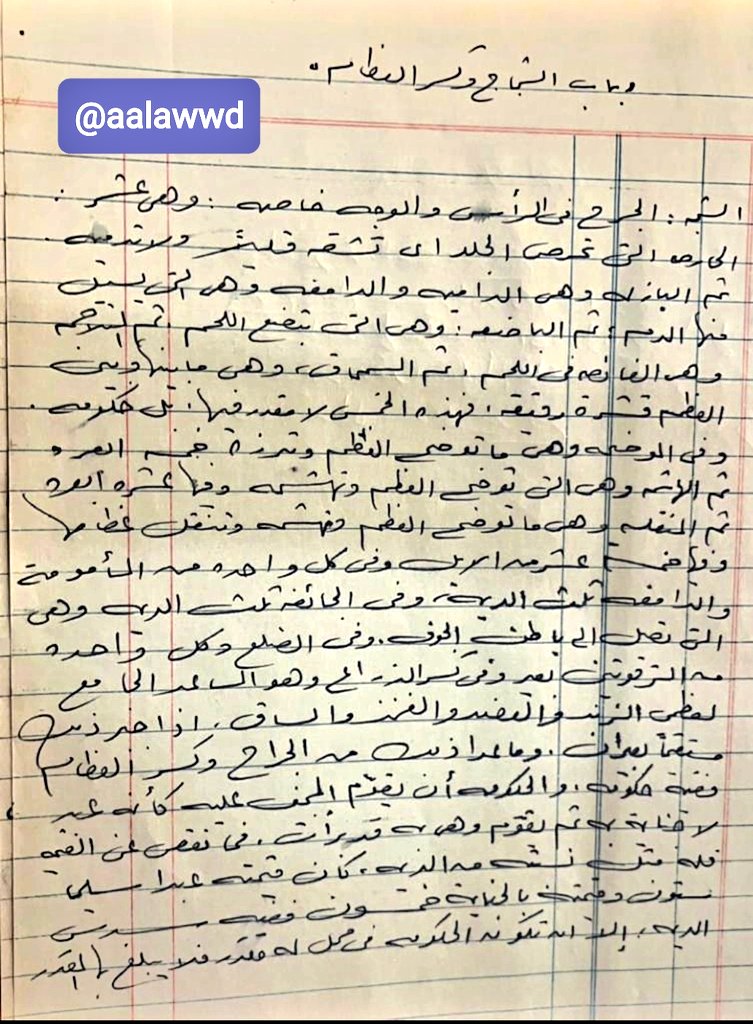 وباب الشجاج وكسر العظام .
@aalawwd
الشجه : الجرح فى الرأس والوجه خاصه : وهى عشر :
الحارصه التى تحرص الجلد اى تشقه قليلاً ولا تدميه .
ثم البازله وهى الداميه والدامعه وهى التى يسيل
منها الدم ، ثم الباضعه : وهى التى تبضع اللحم ، ثم المتلاحمه
وهى الغائصه فى اللحم ، ثم السمحاق ، وهى ما بينها وبين
العظم قشرة رقيقه ، فهذه الخمس لا مقدر فيها ، بل حكومه .
وفى الموضحه وهى ما توضح العظم وتبرزة خمسه ابعره
ثم الهاشمه وهى التى توضح العظم وتهشمه وفيها عشره ابعره
ثم المنقله وهى ما توضح العظم وتهشمه وتنقل عظامها
وفيها خمسة عشر من الابل وفى كل واحده من المأمومة
والدامغه ثلث الدية ، وفى الجائفه ثلث الديه وهى
التى تصل الى باطن الجوف . وفى الضلع وكل واحده
من الترقوتين بعير وفى كسر الذراع وهو الساعد الجامع
لعظمى الزند والعضد والفخذ والساق ، اذا جبر ذلك
مستقيماً بعيران ، وما عدا ذلك من الجراح وكسر العظام
ففيه حكومه ، والحكومه أن يقوّم المجنى عليه كأنه عبد
لا جناية به ثم يقوّم وهى به قد برأت ، فما نقص عن القيمه
فله مثل نسبته من الديه ، كأن قيمته عبدا سليما
ستون وقيمته بالجناية خمسون ففيه سدس
الديه ، إلا ان تكون الحكومه فى محل له مقدر فلا يبلغ بها المقدر